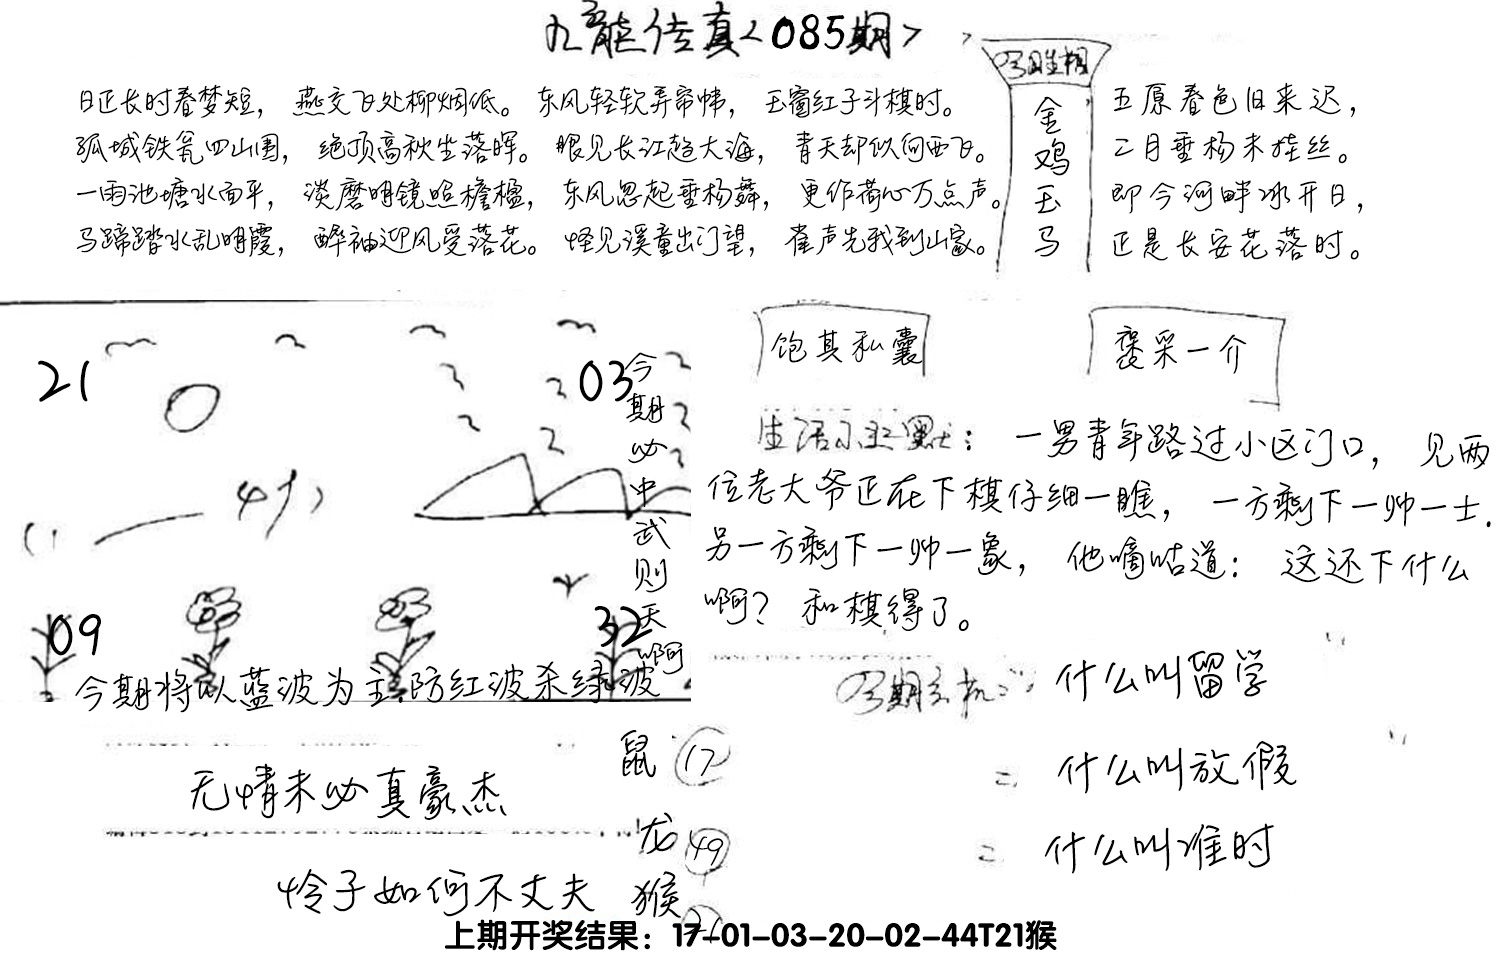 九龙传真<085期>
日正长时春梦短，燕交飞处柳烟低。东风轻软弄帘帏，玉窗红子斗棋时。
孤城铁瓮四山围，绝顶高秋坐落晖。眼见长江趋大海，青天却似向西飞。
一雨池塘水面平，淡磨明镜照檐楹，东风忽起垂杨舞，更作荷心万点声。
马蹄踏水乱明霞，醉袖迎风受落花。怪见溪童出门望，雀声先我到山家。
金
鸡
玉
马
五原春色旧来迟，
二月垂杨未挂丝。
即今河畔冰开日，
正是长安花落时。
21
03
09
32
今期必中武则天啊
今期将以蓝波为主防红波杀绿波
饱其私囊
褒采一介
生活小幽默：一男青年路过小区门口，见两
位老大爷正在下棋仔细一瞧，一方剩下一帅一士.
另一方剩下一帅一象，他嘀咕道：这还下什么
啊？和棋得了。
什么叫留学
什么叫放假
什么叫准时
无情未必真豪杰
怜子如何不丈夫
鼠 17
龙 49
猴 21
上期开奖结果：17-01-03-20-02-44T21猴